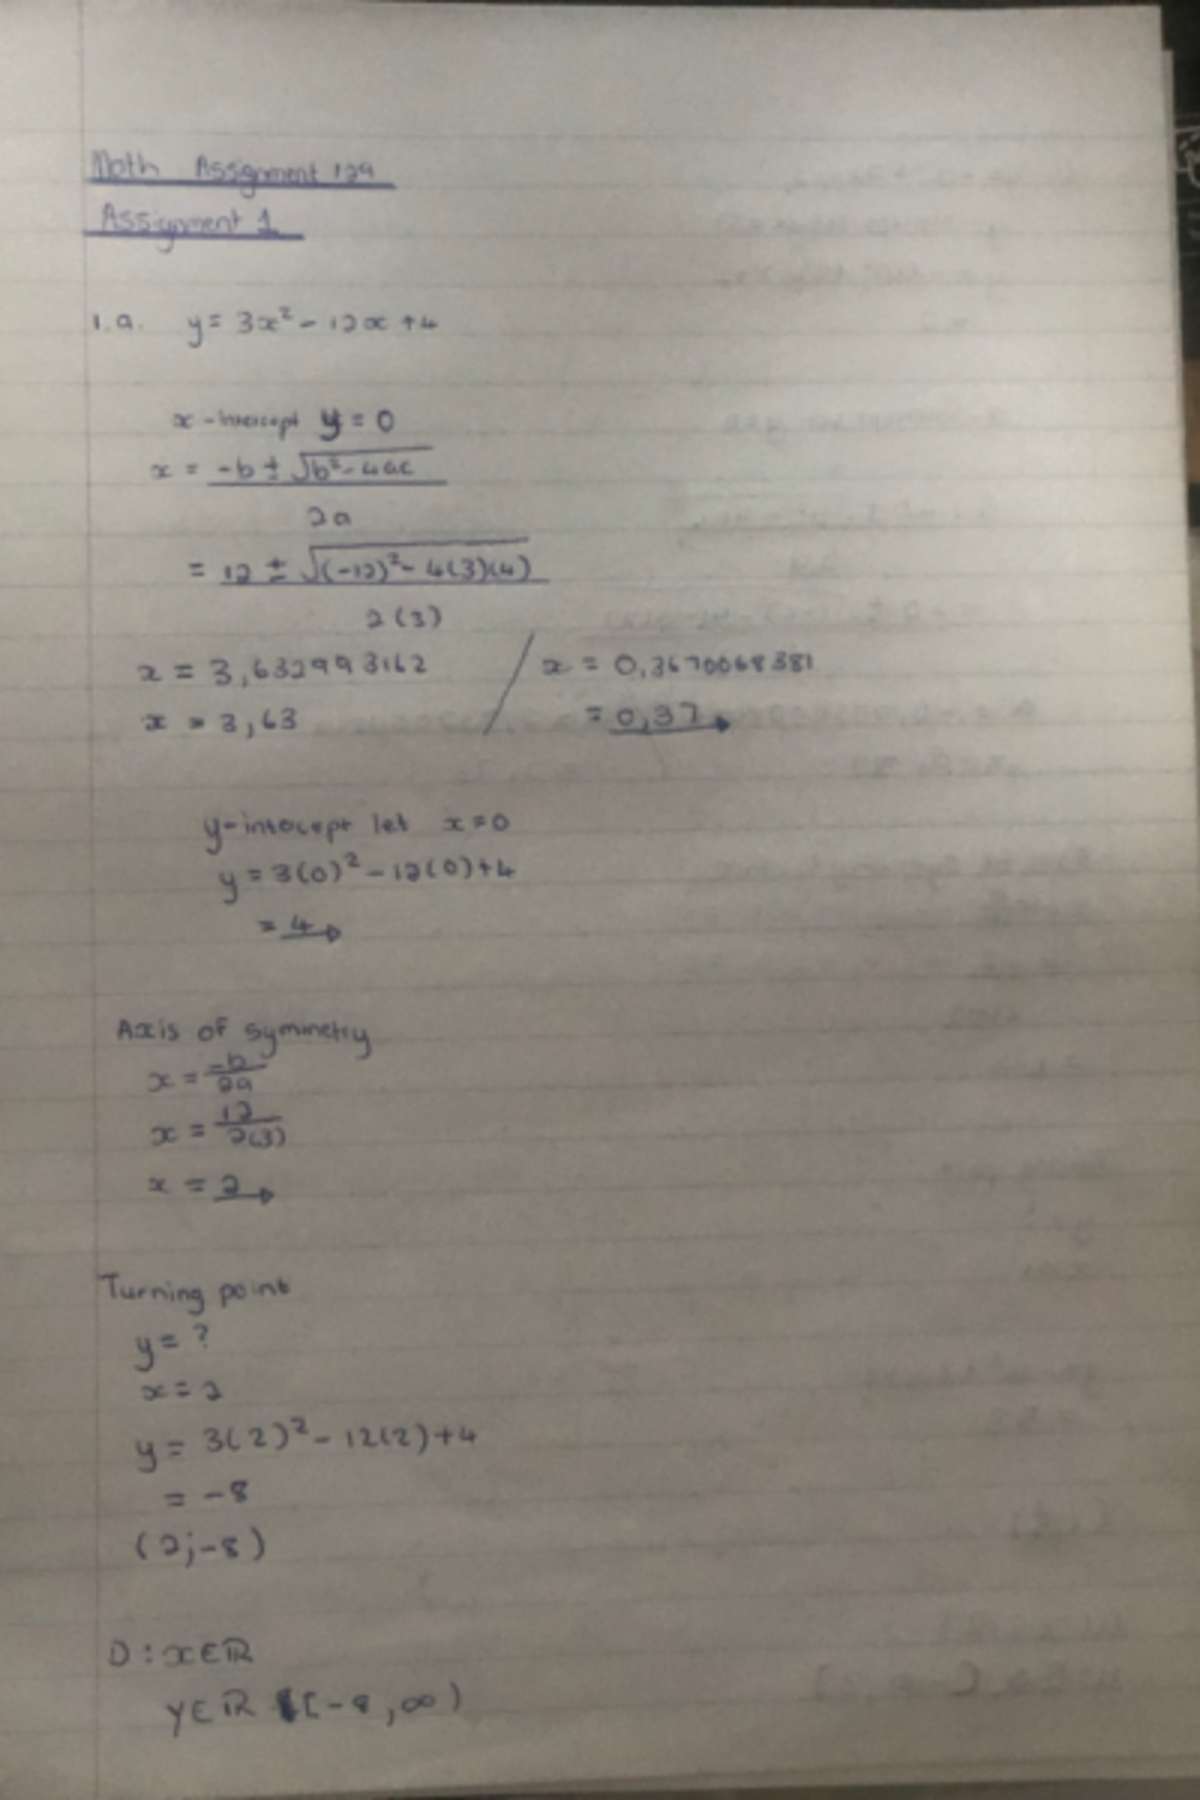 Math Assignment 129
Assignment 1
1.a. y = 3x² - 12x + 4
x-intercept y = 0
x = -b ± √b² - 4ac
2a
= 12 ± √(-12)² - 4(3)(4)
2(3)
x = 3,632993162 / x = 0,3670068381
x = 3,63 = 0,37
y-intercept let x = 0
y = 3(0)² - 12(0) + 4
= 4
Axis of symmetry
x = -b/2a
x = 12/2(3)
x = 2
Turning point
y = ?
x = 2
y = 3(2)² - 12(2) + 4
= -8
(2;-8)
D : x∈ℝ
y∈ℝ [-8, ∞)